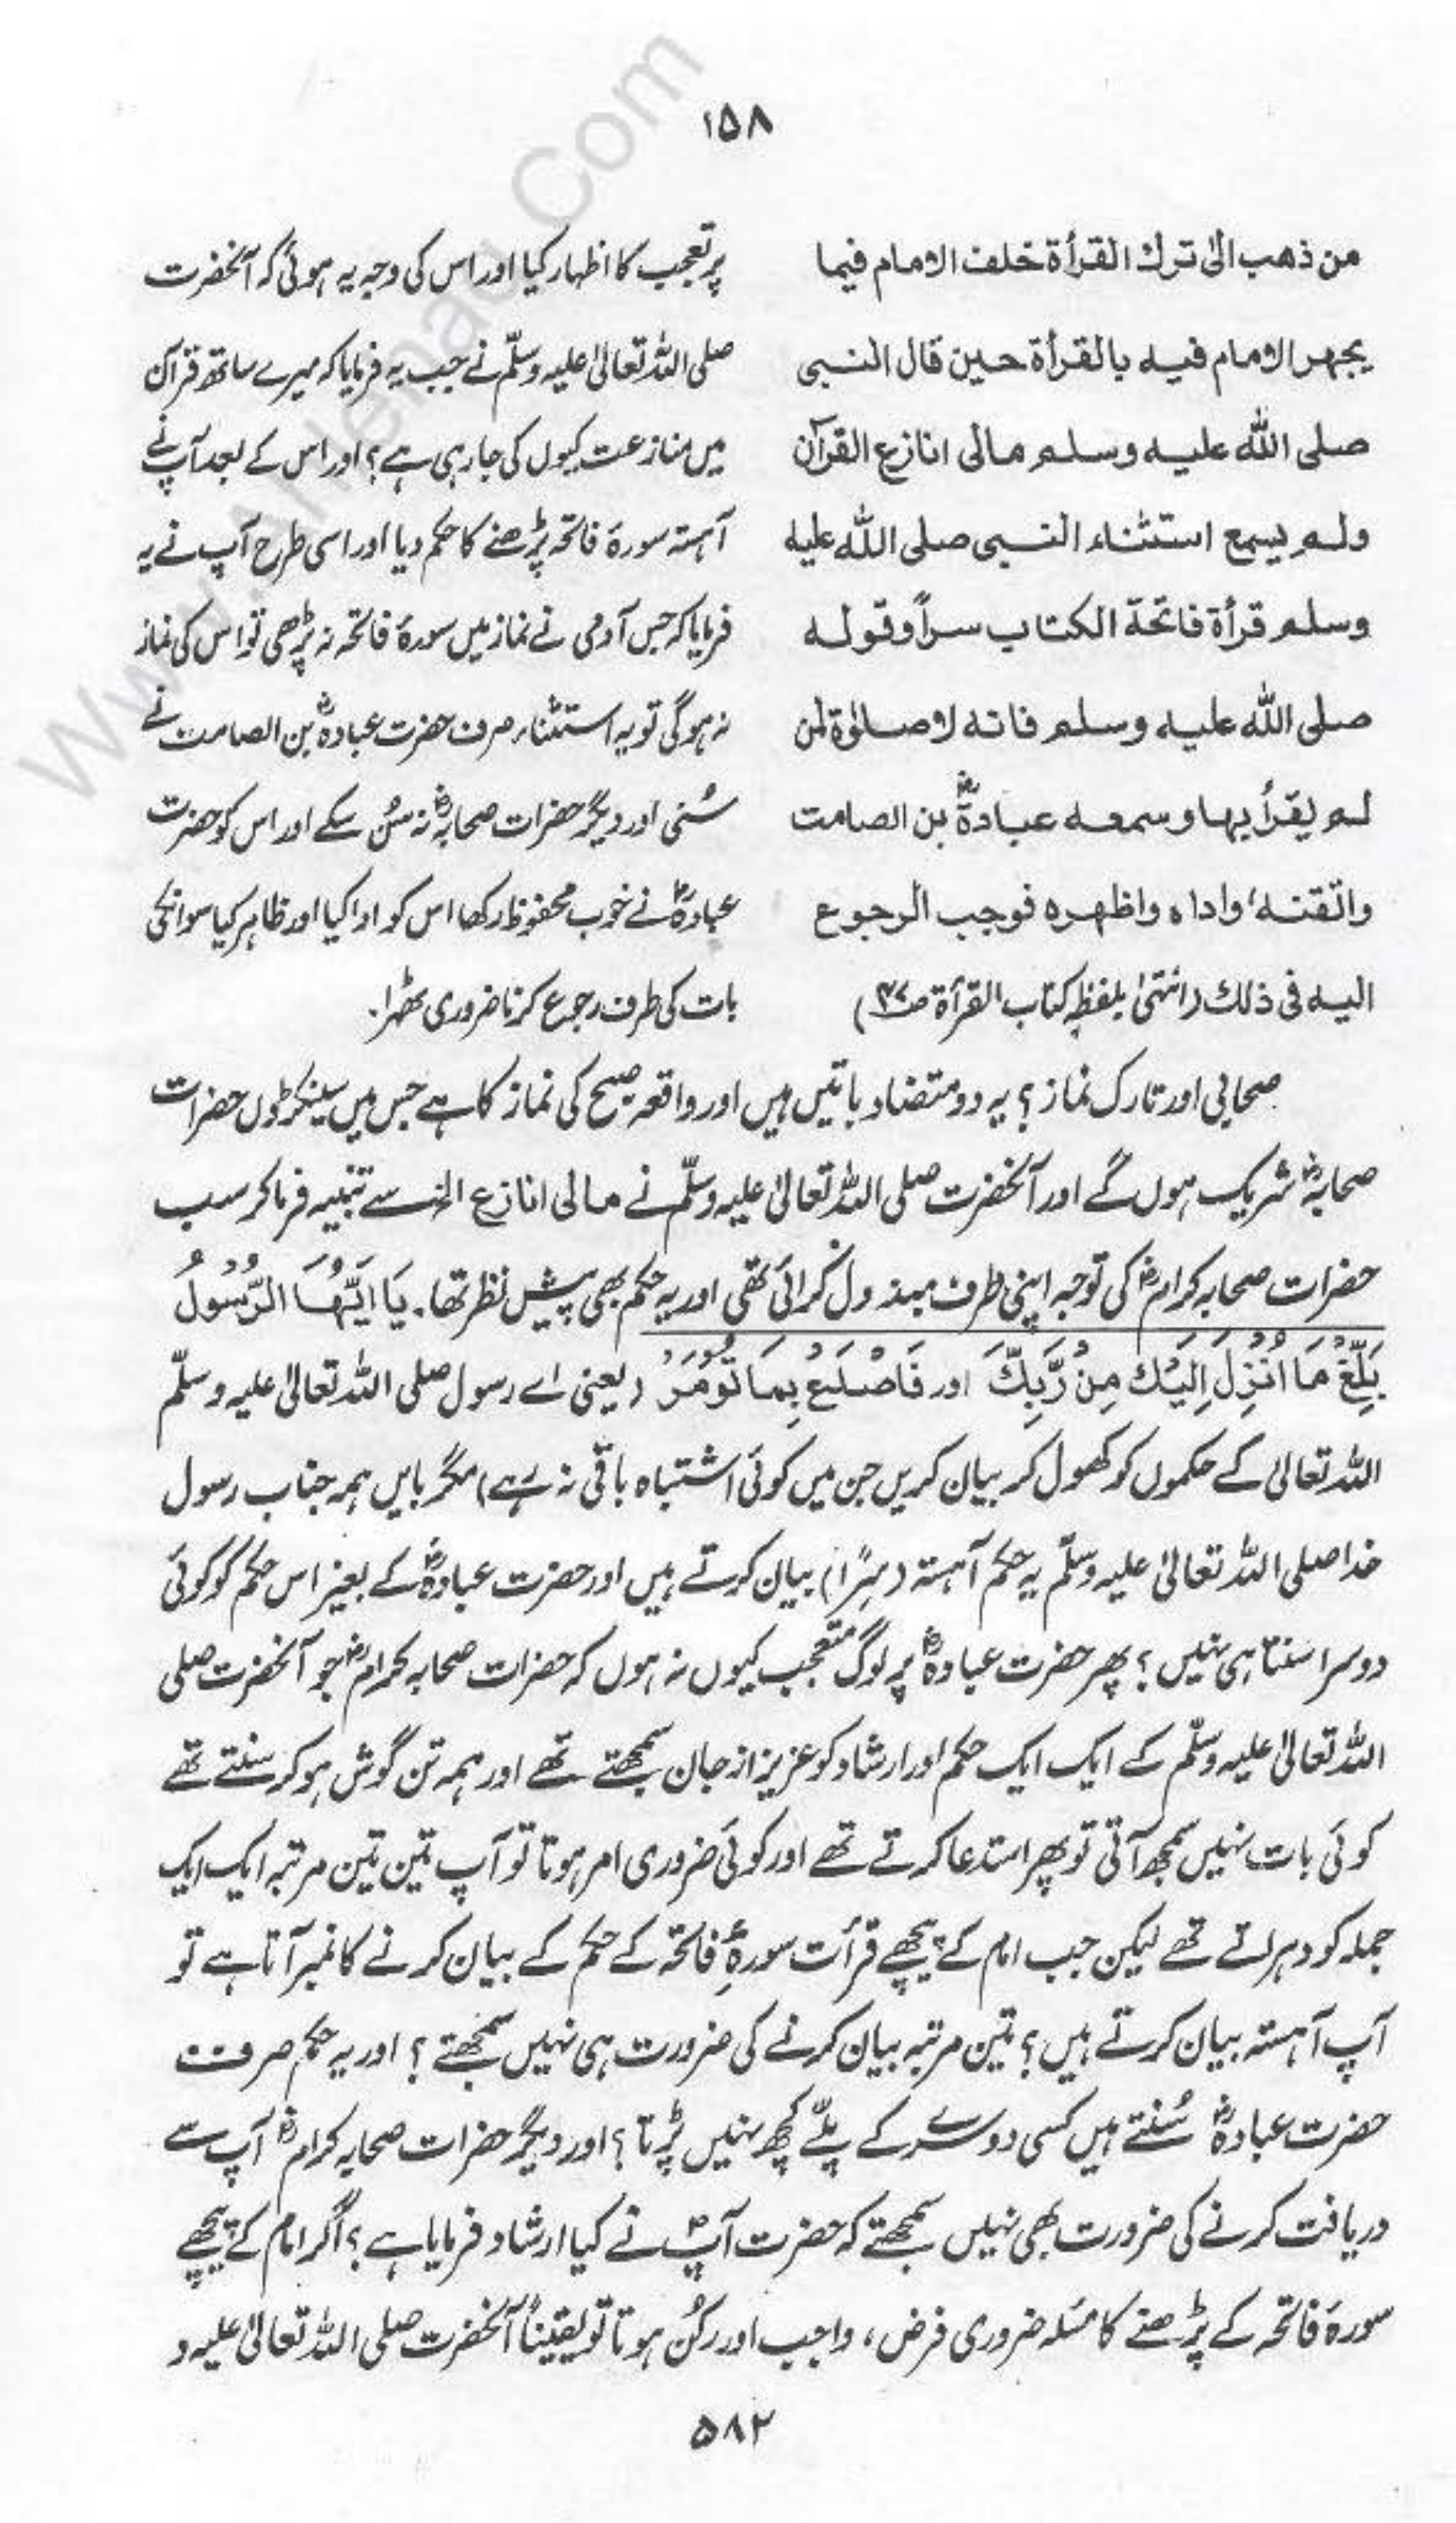 ۱۵۸
من ذهب الىٰ ترك القرأة خلف الامام فيما
يجهر الامام فيه بالقرأة حين قال النبى
صلى الله عليه وسلم مالى انازع القرآن
ولم يسمع استثناء النبى صلى الله عليه
وسلم قرأة فاتحة الكتاب سراً وقوله
صلى الله عليه وسلم فانه لا صلوٰة لمن
لم يقرأ بها وسمعه عبادةؓ بن الصامت
واتقنه، واداه واظهره فوجب الرجوع
اليه فى ذلك (انتہیٰ بلفظہٖ کتاب القرأة ص۴۷)
پر تعجب کا اظہار کیا اور اس کی وجہ یہ ہوئی کہ آنحضرت
صلی اللہ تعالیٰ علیہ وسلّم نے جب یہ فرمایا کہ میرے ساتھ قرآن
میں منازعت کیوں کی جا رہی ہے؟ اور اس کے بعد آپ نے
آہستہ سورۃ فاتحہ پڑھنے کا حکم دیا اور اسی طرح آپ نے یہ
فرمایا کہ جس آدمی نے نماز میں سورۂ فاتحہ نہ پڑھی تو اس کی نماز
نہ ہوگی تو یہ استثناء صرف حضرت عبادہؓ بن الصامت نے
سُنی اور دیگر حضرات صحابہؓ نہ سُن سکے اور اس کو حضرت
عبادہؓ نے خوب محفوظ رکھا اس کو ادا کیا اور ظاہر کیا سو انکی
بات کی طرف رجوع کرنا ضروری ٹھہرا۔
صحابی اور تارک نماز؟ یہ دو متضاد باتیں ہیں اور واقعہ صبح کی نماز کا ہے جس میں سینکڑوں حضرات
صحابہؓ شریک ہوں گے اور آنحضرت صلی اللہ تعالیٰ علیہ وسلّم نے مالی انازع الخ سے تنبیہ فرما کر سب
حضرات صحابہ کرامؓ کی توجہ اپنی طرف مبذول کرائی تھی اور یہ حکم بھی پیش نظر تھا۔ يَا اَيُّهَا الرَّسُوْلُ
بَلِّغْ مَا اُنْزِلَ اِلَيْكَ مِنْ رَّبِّكَ اور فَاصْدَعْ بِمَا تُؤْمَرُ (یعنی اے رسول صلی اللہ تعالیٰ علیہ وسلّم
اللہ تعالیٰ کے حکموں کو کھول کر بیان کریں جن میں کوئی اشتباہ باقی نہ رہے) مگر بایں ہمہ جناب رسول
خدا صلی اللہ تعالیٰ علیہ وسلّم یہ حکم آہستہ (سِرًّا) بیان کرتے ہیں اور حضرت عبادہؓ کے بغیر اس حکم کو کوئی
دوسرا سنتا ہی نہیں؟ پھر حضرت عبادہؓ پر لوگ متعجب کیوں نہ ہوں کہ حضرات صحابہ کرامؓ جو آنحضرت صلی
اللہ تعالیٰ علیہ وسلّم کے ایک ایک حکم اور ارشاد کو عزیز از جان سمجھتے تھے اور ہمہ تن گوش ہو کر سنتے تھے
کوئی بات نہیں سمجھ آتی تو پھر استدعا کرتے تھے اور کوئی ضروری امر ہوتا تو آپ تین تین مرتبہ ایک ایک
جملہ کو دہراتے تھے لیکن جب امام کے پیچھے قرأت سورۂ فاتحہ کے حکم کے بیان کرنے کا نمبر آتا ہے تو
آپ آہستہ بیان کرتے ہیں؟ تین مرتبہ بیان کرنے کی ضرورت ہی نہیں سمجھتے؟ اور یہ حکم صرف
حضرت عبادہؓ سُنتے ہیں کسی دوسرے کے پلّے کچھ نہیں پڑتا؟ اور دیگر حضرات صحابہ کرامؓ آپ سے
دریافت کرنے کی ضرورت بھی نہیں سمجھتے کہ حضرت آپؐ نے کیا ارشاد فرمایا ہے؟ اگر امام کے پیچھے
سورۃ فاتحہ کے پڑھنے کا مسئلہ ضروری فرض، واجب اور رکُن ہوتا تو یقیناً آنحضرت صلی اللہ تعالیٰ علیہ و
۵۸۲